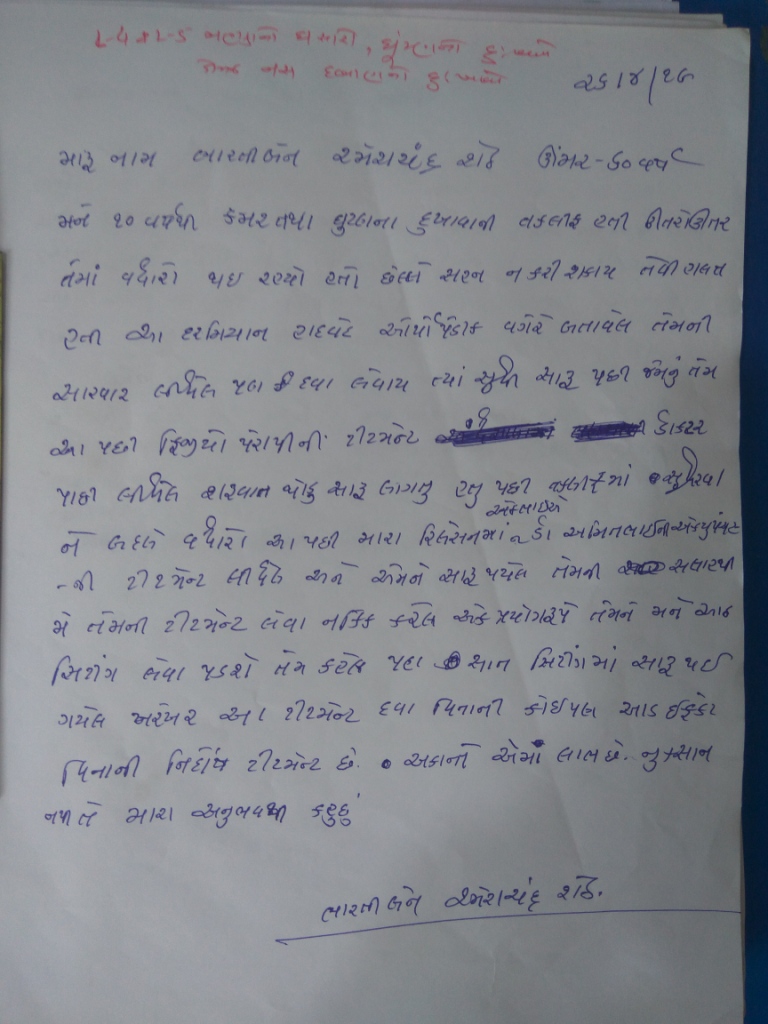 L-4 & L-5 મણકાનો ઘસારો, ઘુંટણનો દુઃખાવો
નસ દબાણનો દુઃખાવો
મારૂ નામ ભારતીબેન રમેશચંદ્ર શેઠ ઊંમર-૬૦ વર્ષ
મને ૧૦ વર્ષથી કમર તથા ઘુટણના દુખાવાની તકલીફ હતી ઉતરોઉતર
તેમાં વધારો થઇ રહયો હતો છેલ્લે સહન ન કરી શકાય તેવી હાલત
હતી આ દરમિયાન હાડવૈદ ઓર્થોપેડીક વગેરે બતાવેલ તેમની
સારવાર લીધેલ પણ દવા લેવાય ત્યાં સુધી સારૂ પછી જેમનું તેમ
આ પછી ફિજીયો થેરાપીની ટીટમેન્ટ ડોકટર
પાછી લીધેલ શરૂવાત થોડુ સારૂ લાગતુ હતુ પછી તકલીફમાં સુધારવા
ને બદલે વધારો આ પછી મારા રિલેસનમાં એકભાઇએ ડો અમિતભાઇની એક્યુપંચર
-ની ટીટમેન્ટ લીધેલ અને એમને સારૂ થયેલ તેમની સલાહથી
મે તેમની ટીટમેન્ટ લેવા નક્કિ કરેલ એક પ્રયોગરૂપે તેમને મને આઠ
સિટીંગ લેવા પડશે તેમ કહેલ પણ સાત સિટીંગમાં સારૂ થઈ
ગયેલ ખરેખર આ ટીટમેન્ટ દવા વિનાની કોઇપણ આડ ઇફેકટ
વિનાની નિર્દોષ ટીટમેન્ટ છે. એમાં લાભ છે. નુકસાન
નથી તે મારા અનુભવથી કહુછું
ભારતીબેન રમેશચંદ્ર શેઠ.